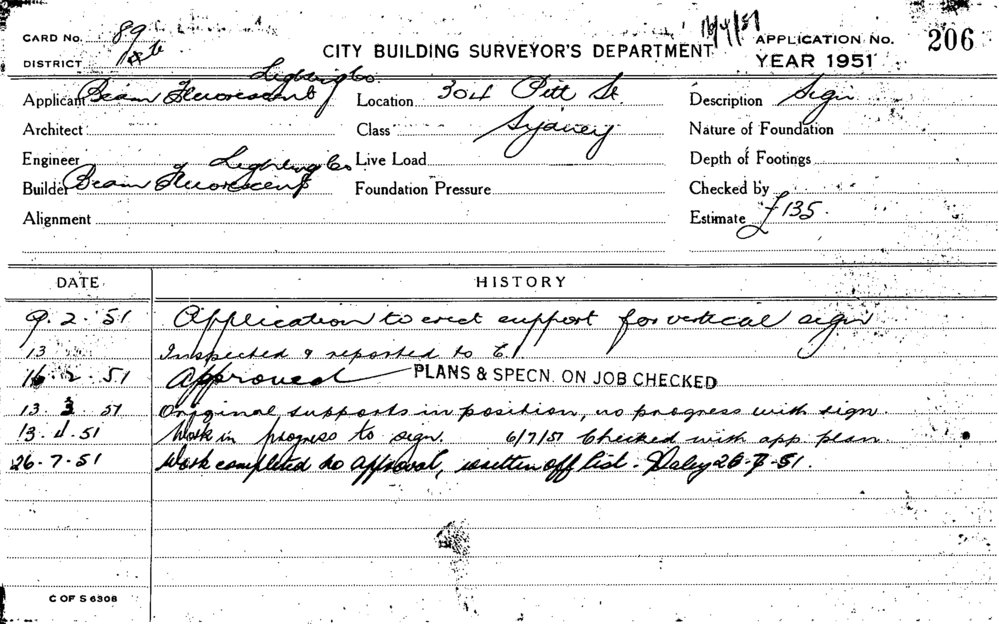 CARD No. 89
16/4/51
APPLICATION No. 206
DISTRICT
CITY BUILDING SURVEYOR'S DEPARTMENT
YEAR 1951
Applicant Beam Fluorescent Lighting Co
Location 304 Pitt St.
Description Sign
Architect
Class Sydney
Nature of Foundation
Engineer
Live Load
Depth of Footings
Builder Beam Fluorescent Lighting Co
Foundation Pressure
Checked by
Alignment
Estimate £135.
DATE
HISTORY
9.2.51 Application to erect support for vertical sign
13 Inspected & reported to C.
16.2.51 Approved PLANS & SPECN. ON JOB CHECKED
13.3.51 Original supports in position, no progress with sign.
13.4.51 Work in progress to sign. 6/7/51 Checked with app plan.
26.7.51 Work completed to approval, written off list. Daley 26-7-51.
C OF S 6308